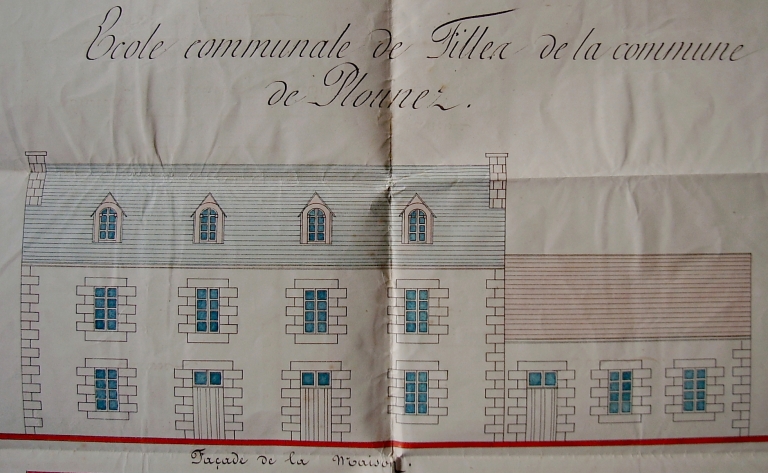 Ecole communale de Filles de la commune
de Plounez.
Façade de la Maison.